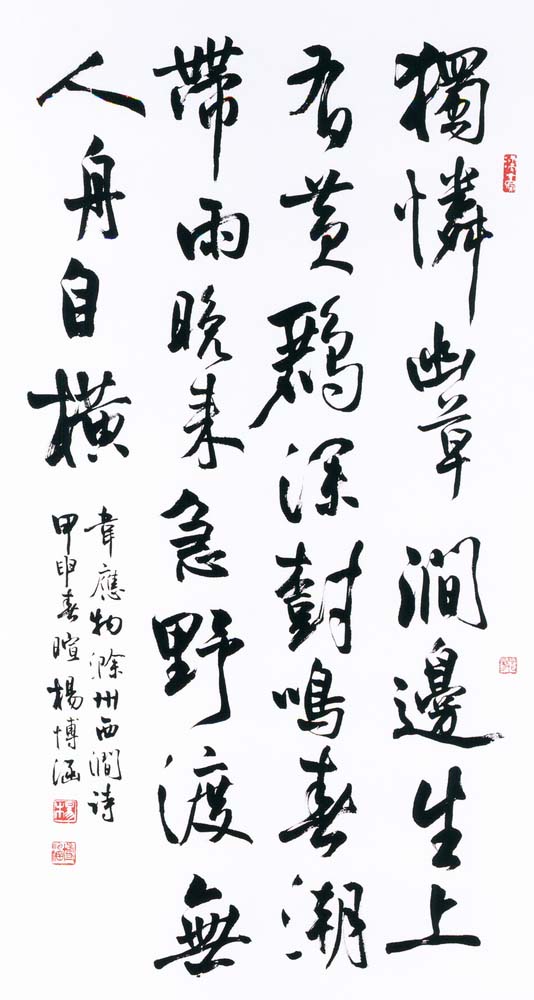 獨憐幽草澗邊生上
有黃鸝深樹鳴春潮
帶雨晚來急野渡無
人舟自橫
韋應物滁州西澗詩
甲申春暄楊博涵